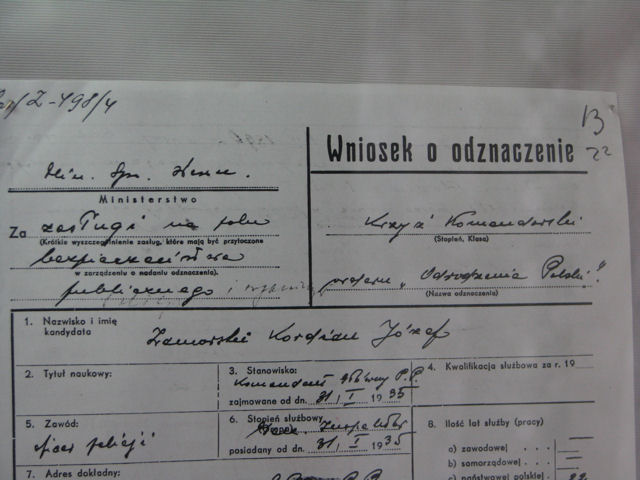 Z-498/4
13
22
Wniosek o odznaczenie
Min. Spr. Wewn.
Ministerstwo
Za zasługi na polu
(Krótkie wyszczególnienie zasług, które mają być przytoczone
bezpieczeństwa
w zarządzeniu o nadaniu odznaczenia).
publicznego i
Krzyż Komandorski
(Stopień, Klasa)
orderu „Odrodzenia Polski"
(Nazwa odznaczenia)
1. Nazwisko i imię
kandydata
Zamorski Kordian Józef
2. Tytuł naukowy:
3. Stanowisko:
Komendant Główny P.P.
zajmowane od dn. 31, I 1935
4. Kwalifikacja służbowa za r. 19
5. Zawód:
oficer policji
6. Stopień służbowy
posiadany od dn. 31, I 1935
8. Ilość lat służby (pracy)
a) zawodowej
b) samorządowej
c) państwowej polskiej
7. Adres dokładny: